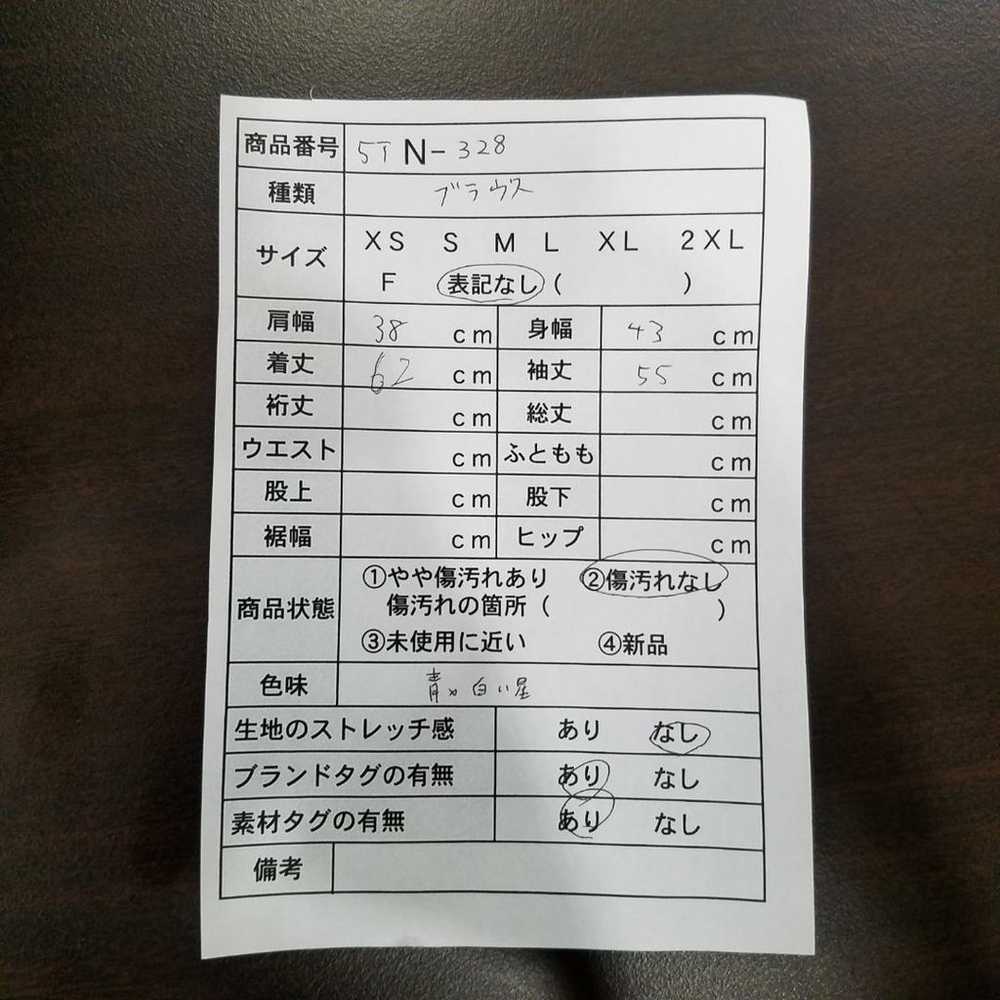 商品番号 5T N-328
種類 ブラウス
サイズ XS S M L XL 2XL
F 表記なし ( )
肩幅 38 cm 身幅 43 cm
着丈 62 cm 袖丈 55 cm
裄丈 cm 総丈 cm
ウエスト cm ふともも cm
股上 cm 股下 cm
裾幅 cm ヒップ cm
商品状態 ①やや傷汚れあり ②傷汚れなし
傷汚れの箇所 ( )
③未使用に近い ④新品
色味 青×白い星
生地のストレッチ感 あり なし
ブランドタグの有無 あり なし
素材タグの有無 あり なし
備考